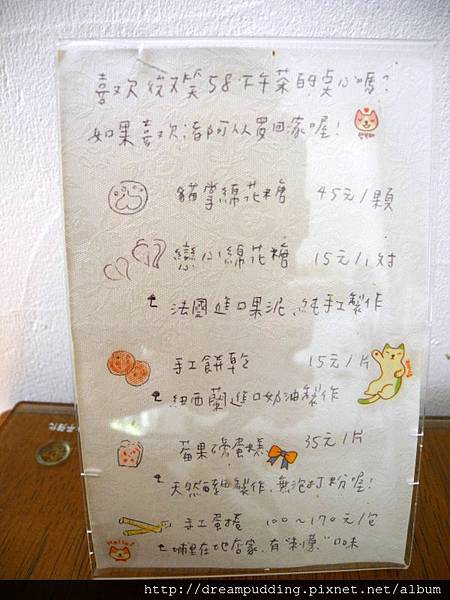 喜歡微笑58下午茶的点心嗎?
如果喜歡,都可以買回家喔!
貓掌綿花糖 45元/顆
戀心綿花糖 15元/1対
法國進口果泥、純手工製作
手工餅乾 15元/片
紐西蘭進口奶油製作
莓果磅蛋糕 35元/片
天然酵母製作,無泡打粉喔!
手工蛋捲 100~170元/包
埔里在地店家,有 口味
http://dreampudding.pixnet.net/album